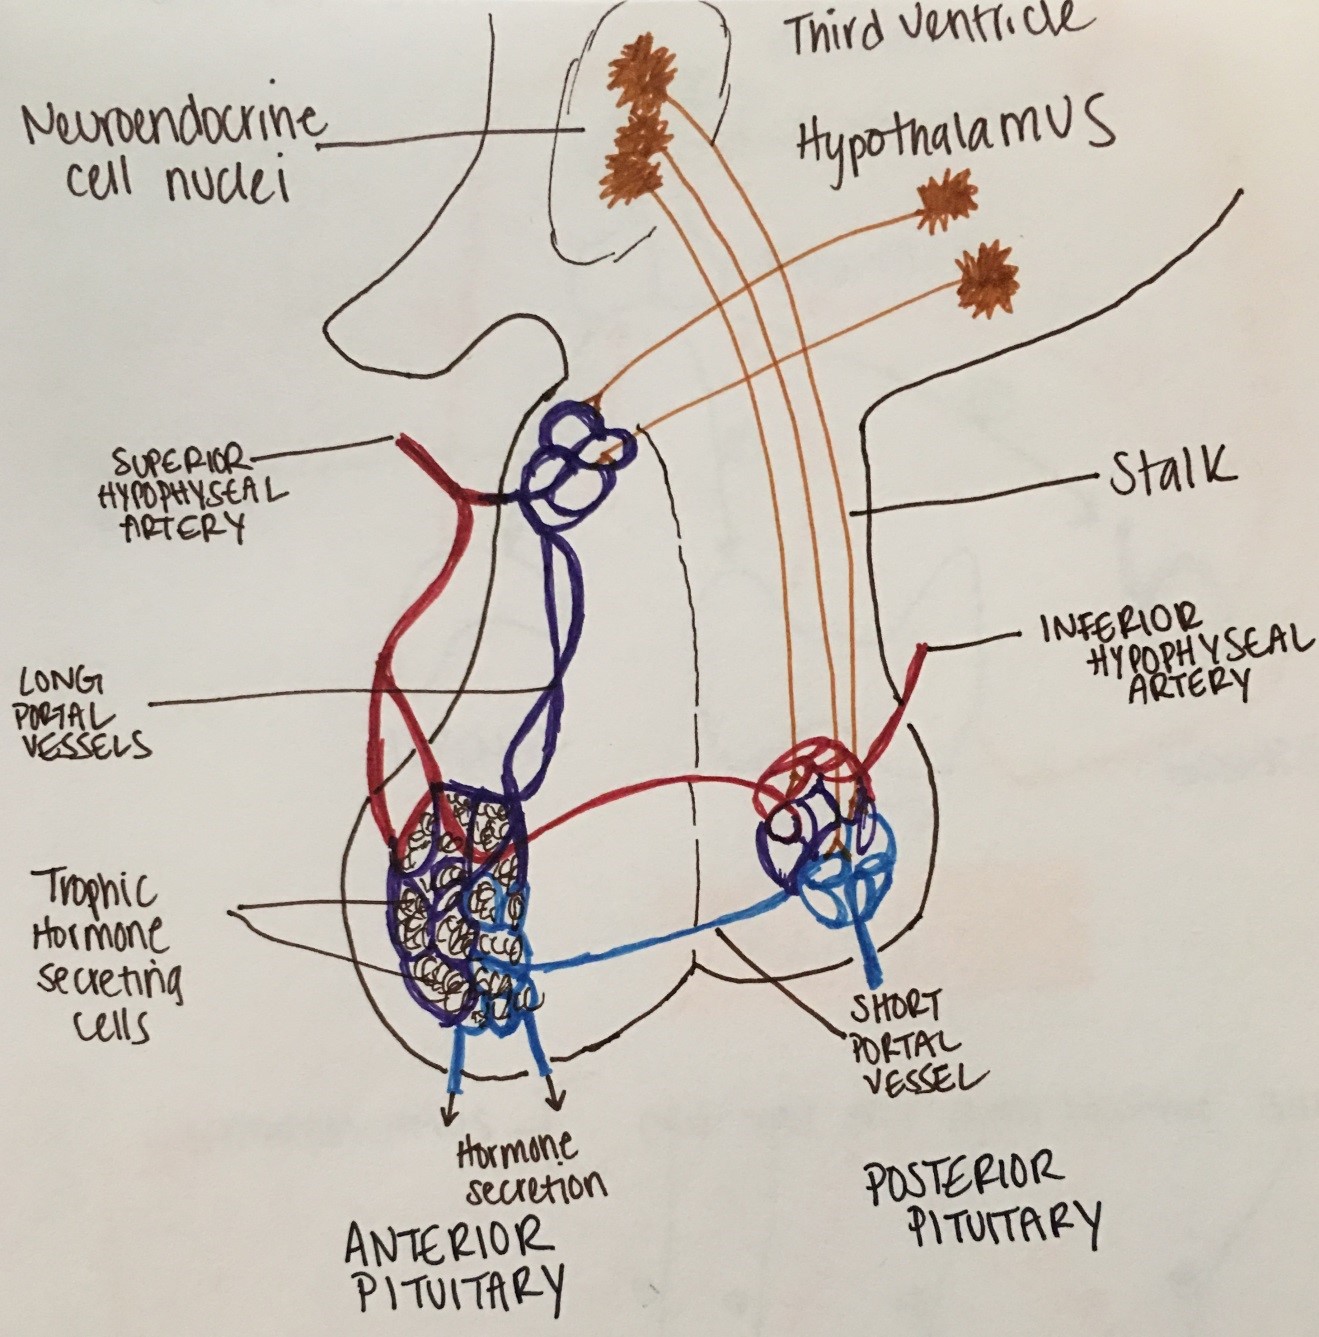 Third Ventricle
Hypothalamus
Neuroendocrine
cell nuclei
SUPERIOR
HYPOPHYSEAL
ARTERY
Stalk
INFERIOR
HYPOPHYSEAL
ARTERY
LONG
PORTAL
VESSELS
Trophic
Hormone
secreting
cells
SHORT
PORTAL
VESSEL
Hormone
secretion
ANTERIOR
PITUITARY
POSTERIOR
PITUITARY